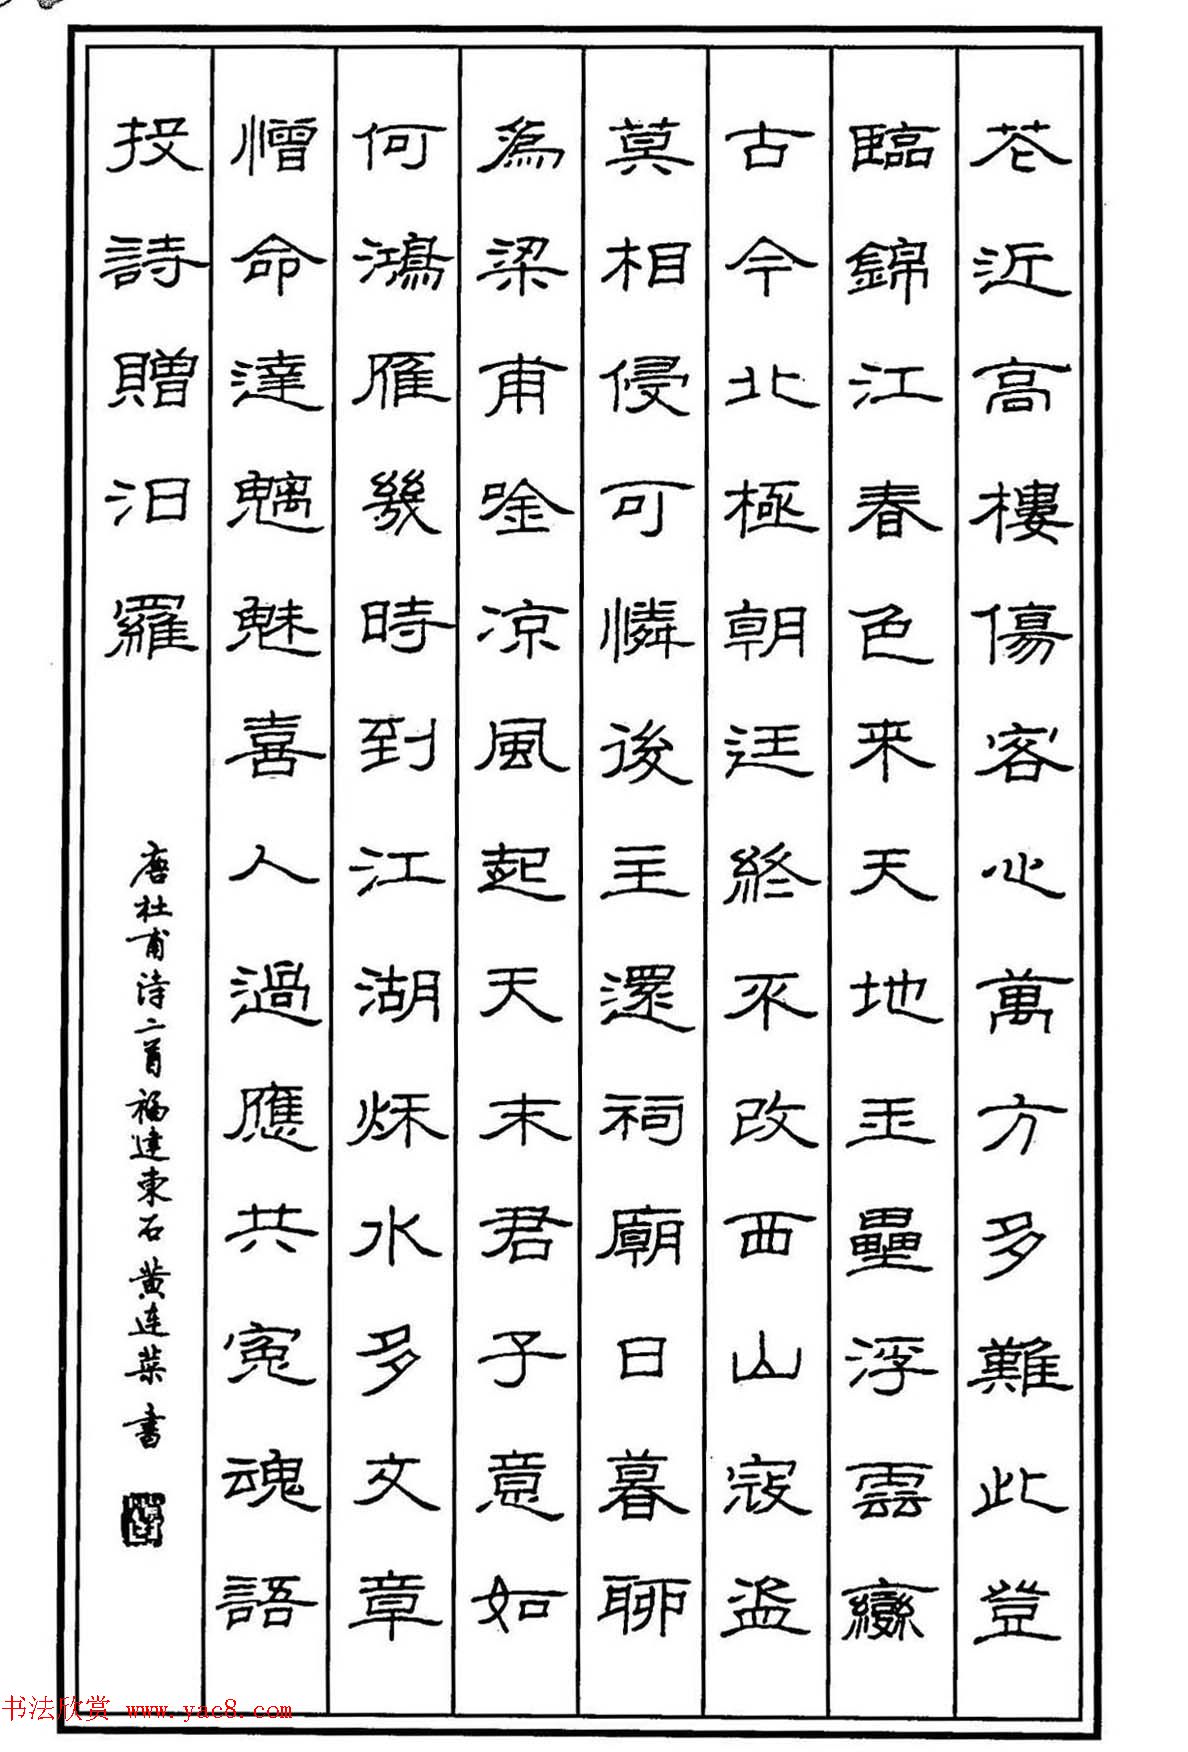 花近高樓傷客心萬方多難此登
臨錦江春色来天地玉壘浮雲變
古今北極朝廷終不改西山寇盗
莫相侵可憐後主還祠廟日暮聊
為梁甫唫凉風起天末君子意如
何鴻雁幾時到江湖秌水多文章
憎命達魑魅喜人過應共冤魂語
投詩贈汨羅
唐杜甫诗二首福建東石黄连葉書
书法欣赏 www.yac8.com